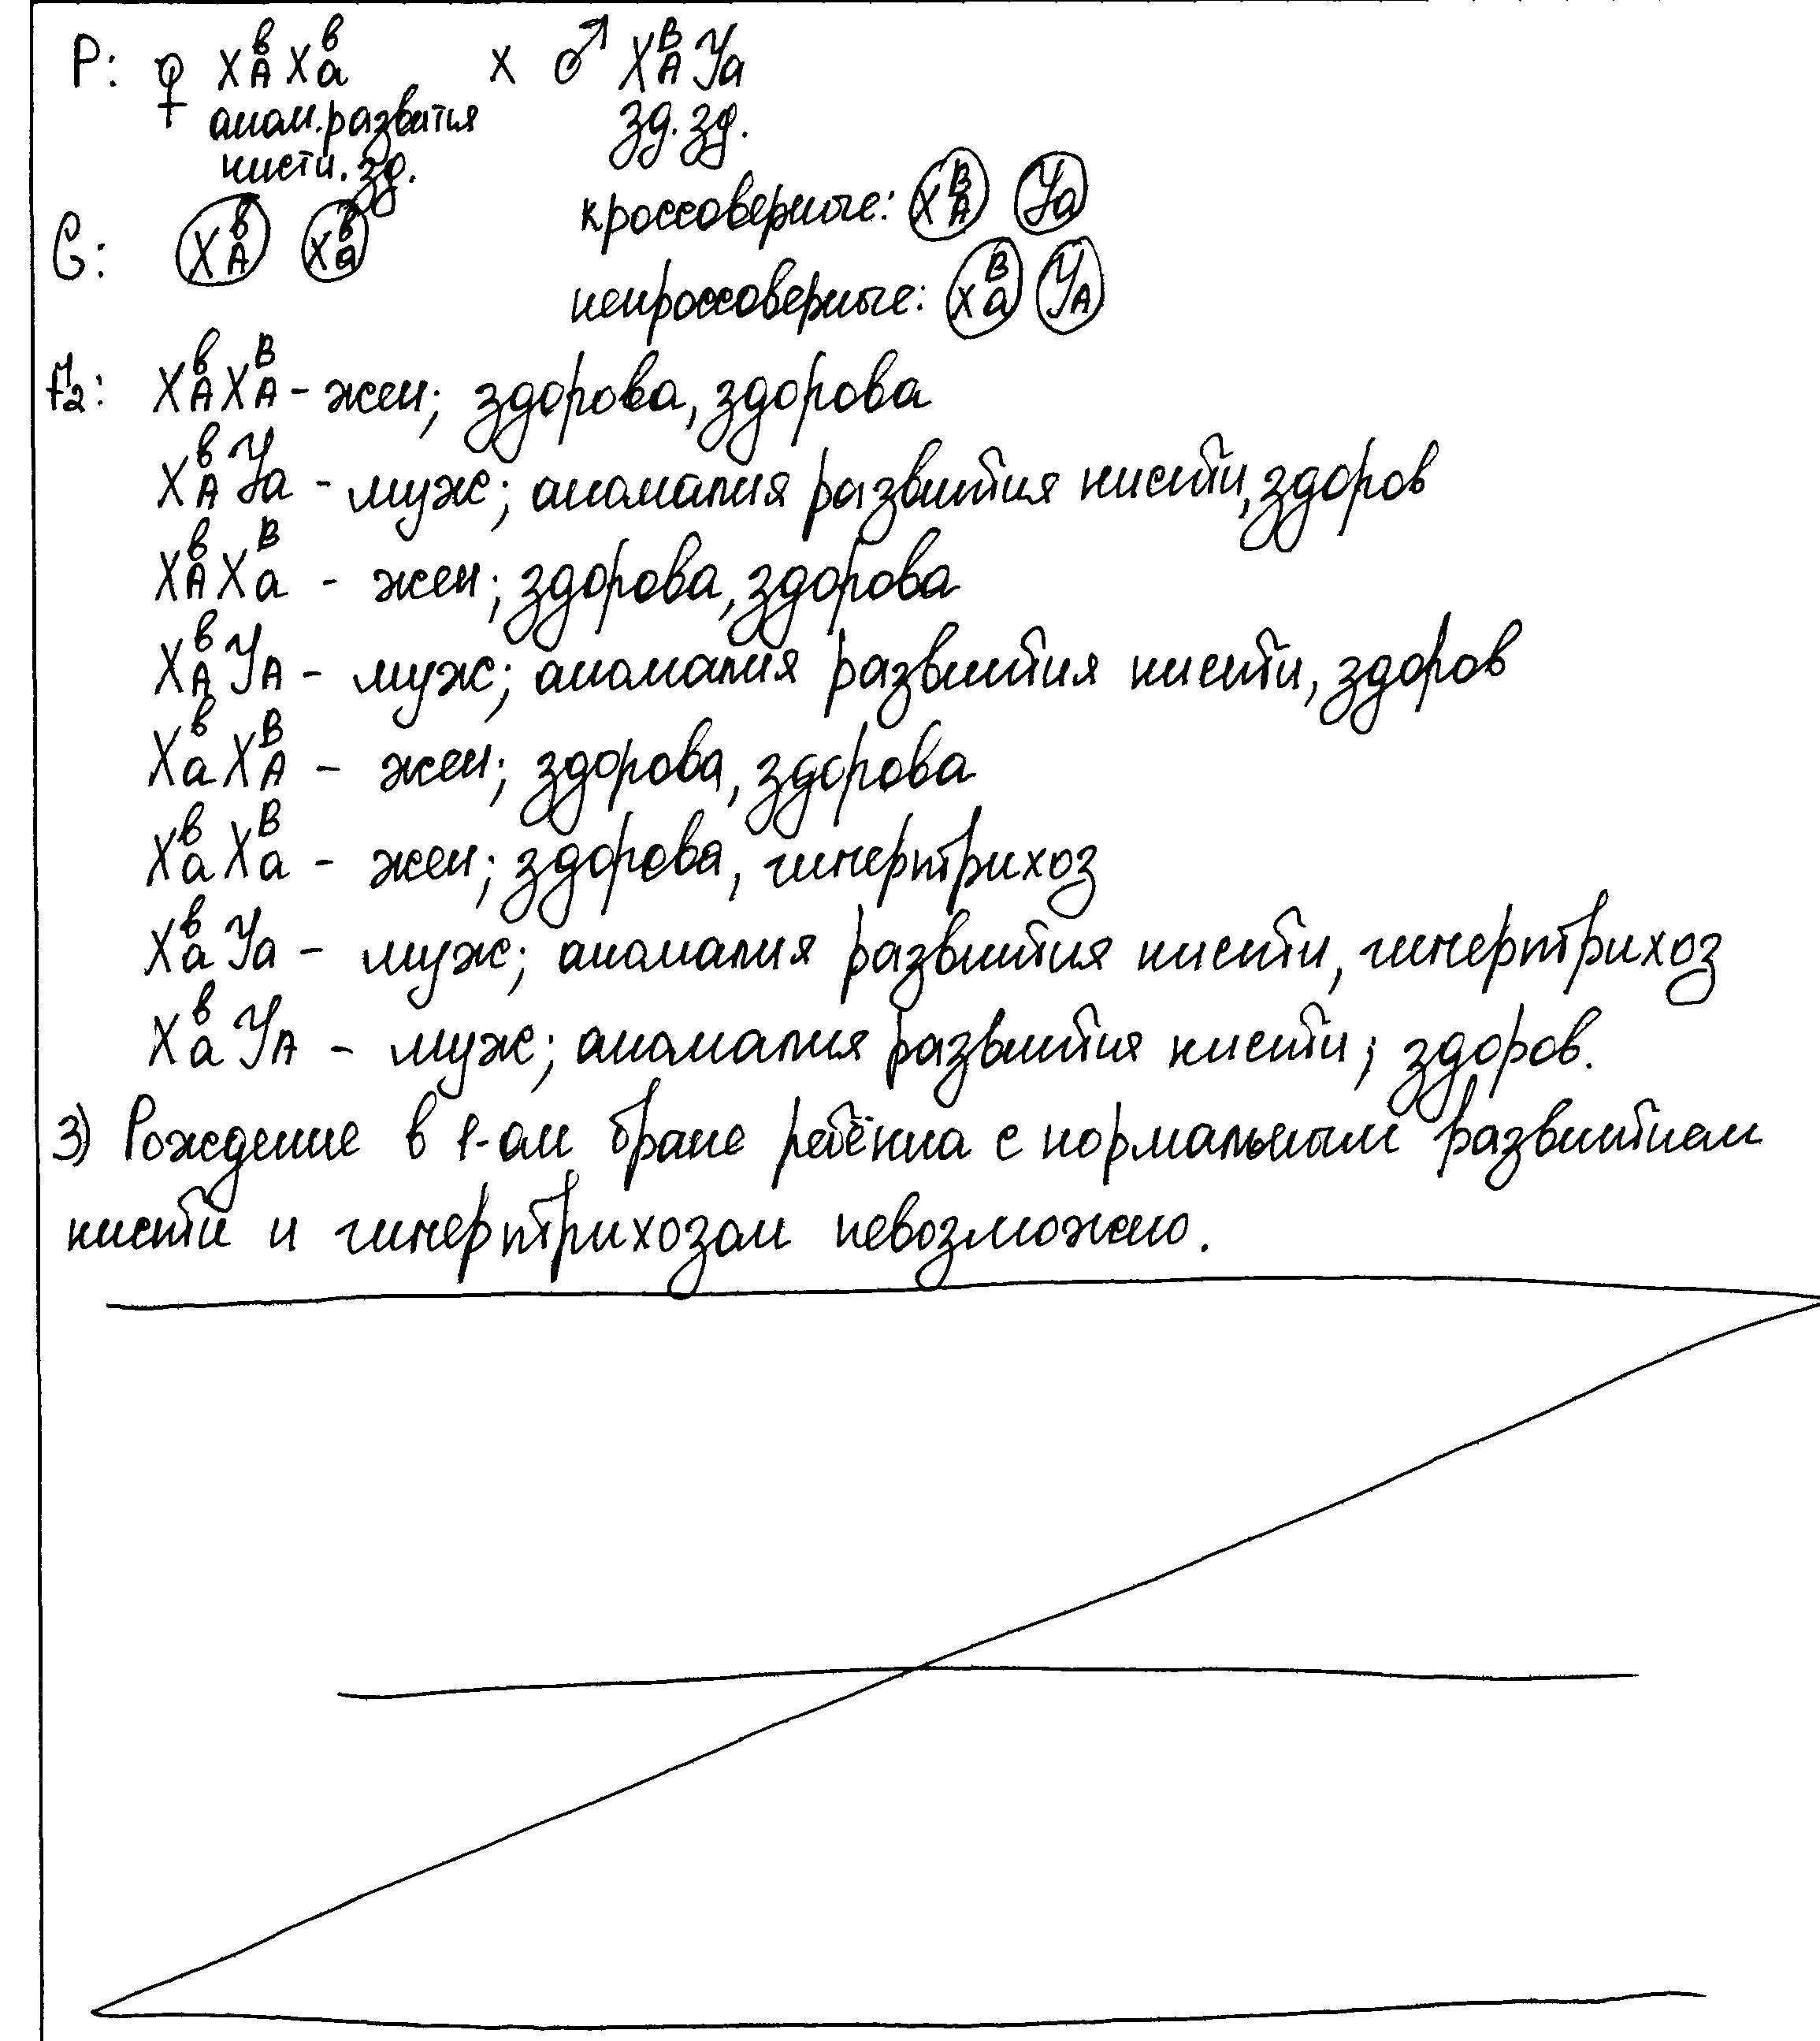 P: ♀ XᵇAXᵇa x ♂ XᴮAYa
аном. развития зд. зд.
кисти. зд.
кроссоверные: XᴮA Ya
G: XᵇA Xᵇa
некроссоверные: Xᴮa YA
F2: XᵇAXᴮA - жен; здорова, здорова
XᵇAYa - муж; аномалия развития кисти, здоров
XᵇAXᴮa - жен; здорова, здорова
XᵇAYA - муж; аномалия развития кисти, здоров
XᵇaXᴮA - жен; здорова, здорова
XᵇaXᴮa - жен; здорова, гипертрихоз
XᵇaYa - муж; аномалия развития кисти, гипертрихоз
XᵇaYA - муж; аномалия развития кисти; здоров.
3) Рождение в 1-ом браке ребёнка с нормальным развитием
кисти и гипертрихозом невозможно.